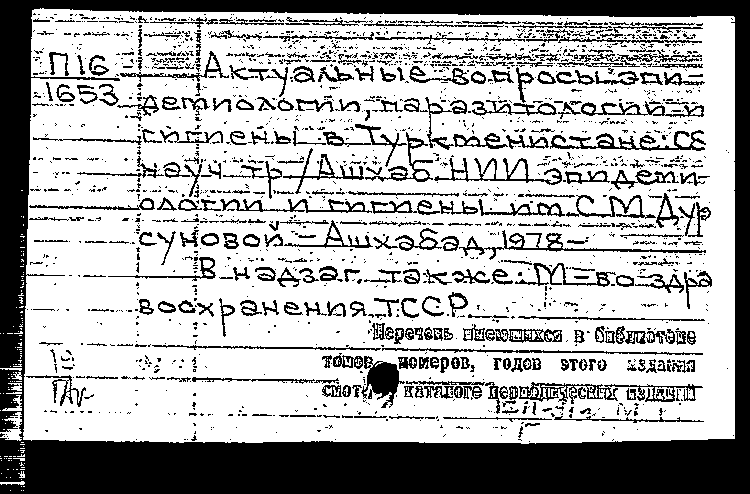 П16 Актуальные вопросы эпи-
1653 демиологии, паразитологии и
гигиены в Туркменистане: Сб
науч тр / Ашхаб. НИИ эпидеми-
ологии и гигиены им. С М Дур
суновой - Ашхабад, 1978-
В надзаг. также: М-во здра
воохранения ТССР.
Перечень имеющихся в библиотеке
томов, номеров, годов этого издания
смотри каталоге периодических изданий